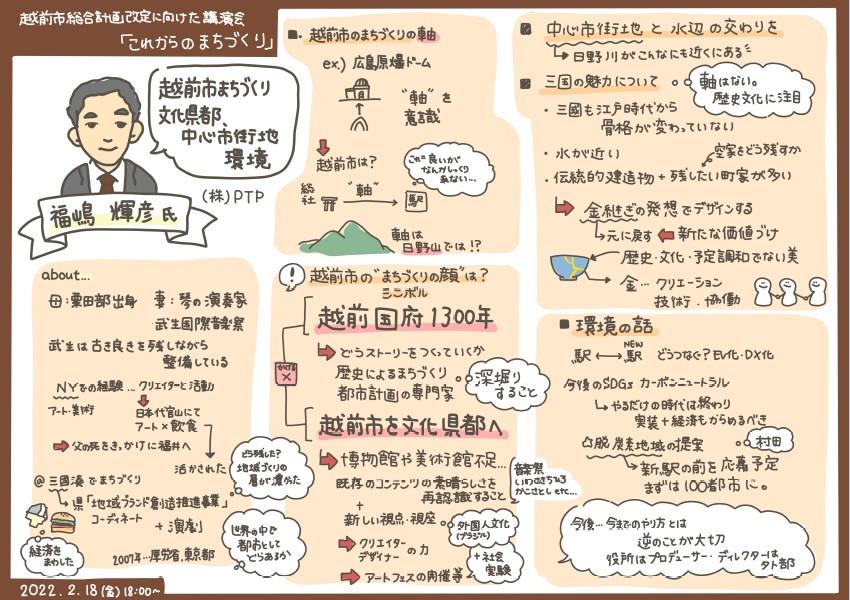 越前市総合計画改定に向けた講演会
「これからのまちづくり」
越前市まちづくり
文化県都、
中心市街地
環境
福嶋 輝彦 氏
(株)PTP
about...
母:粟田部出身 妻:琴の演奏家
武生国際音楽祭
武生は古き良きを残しながら
整備している
NYでの経験…クリエイターと活動
アート・美術
日本代官山にて
アート×飲食
父の死をきっかけに福井へ
活かされた
@三國湊でまちづくり
県「地域ブランド創造推進事業」
コーディネート
+演劇
経済を
まわした
2007年…厚労省、東京都
どう残した?
地域づくりの
層が濃かった
世界の中で
都市として
どうあろう?
2022.2.18(金)18:00~
越前市のまちづくりの軸
ex.) 広島原爆ドーム
"軸"を
意識
越前市は?
これ良いが
なんかしっくり
来ない…
総社
"軸"
駅
軸は
日野山では!?
越前市の"まちづくりの顔"は?
シンボル
越前国府1300年
どうストーリーをつくっていくか
歴史によるまちづくり
都市計画の専門家
深堀り
すること
かける
×
越前市を文化県都へ
博物館や美術館不足…
既存のコンテンツの素晴らしさを
再認識すること
音楽祭
いわさきちひろ
かこさとし etc...
+
新しい視点・視座
外国人文化
(ブラジル)
クリエイター
デザイナーの力
+社会
実験
アートフェスの開催等
中心市街地と水辺の交わりを
日野川がこんなにも近くにある
三国の魅力について
軸はない。
歴史文化に注目
・三國も江戸時代から
骨格が変わっていない
・水が近い
空家をどう残すか
・伝統的建造物+残したい町家が多い
金継ぎの発想でデザインする
元に戻す 新たな価値づけ
歴史・文化・予定調和でない美
金…クリエーション
技術・協働
環境の話
駅 NEW駅 どうつなぐ?EV化・DX化
今後のSDGs カーボンニュートラル
やるだけの時代は終わり
実装+経済もからめるべき
脱炭素地域の提案
村田
新駅の前を応募予定
まずは100都市に。
今後…今までのやり方とは
逆のことが大切
役所はプロデューサー・ディレクターは
外部